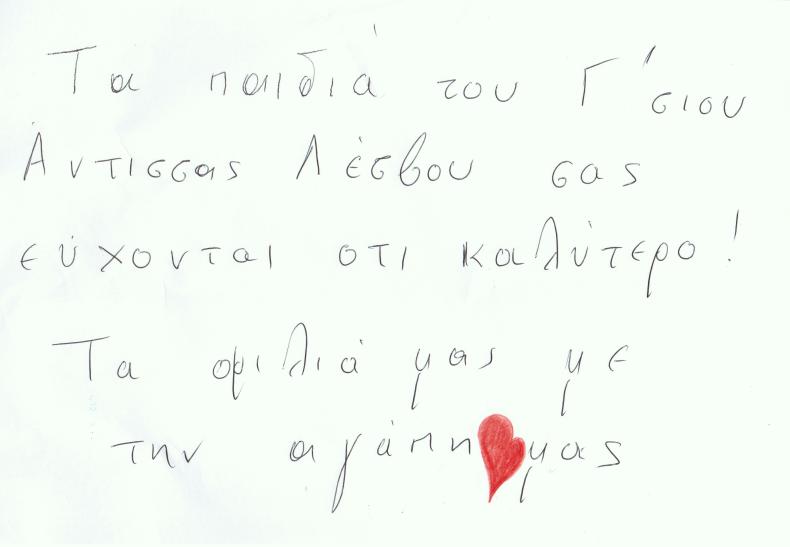 Τα παιδιά του Γ'σιου
Άντισσας Λέσβου σας
εύχονται οτι καλύτερο!
Τα φιλιά μας με
την αγάπη μας